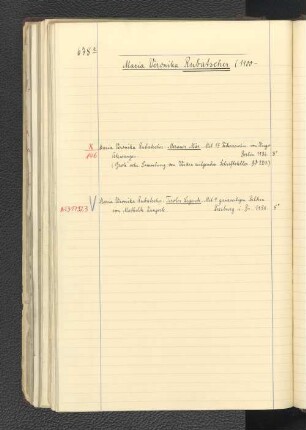 6783
Maria Veronika Rubatscher (1900-
X Maria Veronika Rubatscher: Meraner Mär. Mit 15 Federzeichn. von Hugo
Atzwanger. Berlin 1936. 8°
(Grote'sche Sammlung von Werken zeitgenöss. Schriftsteller. Bd 221)
V Maria Veronika Rubatscher: Tiroler Legende. Mit ganzseitigen Bildern
von Mathilde Freiburg i. Br. 1936. 8°